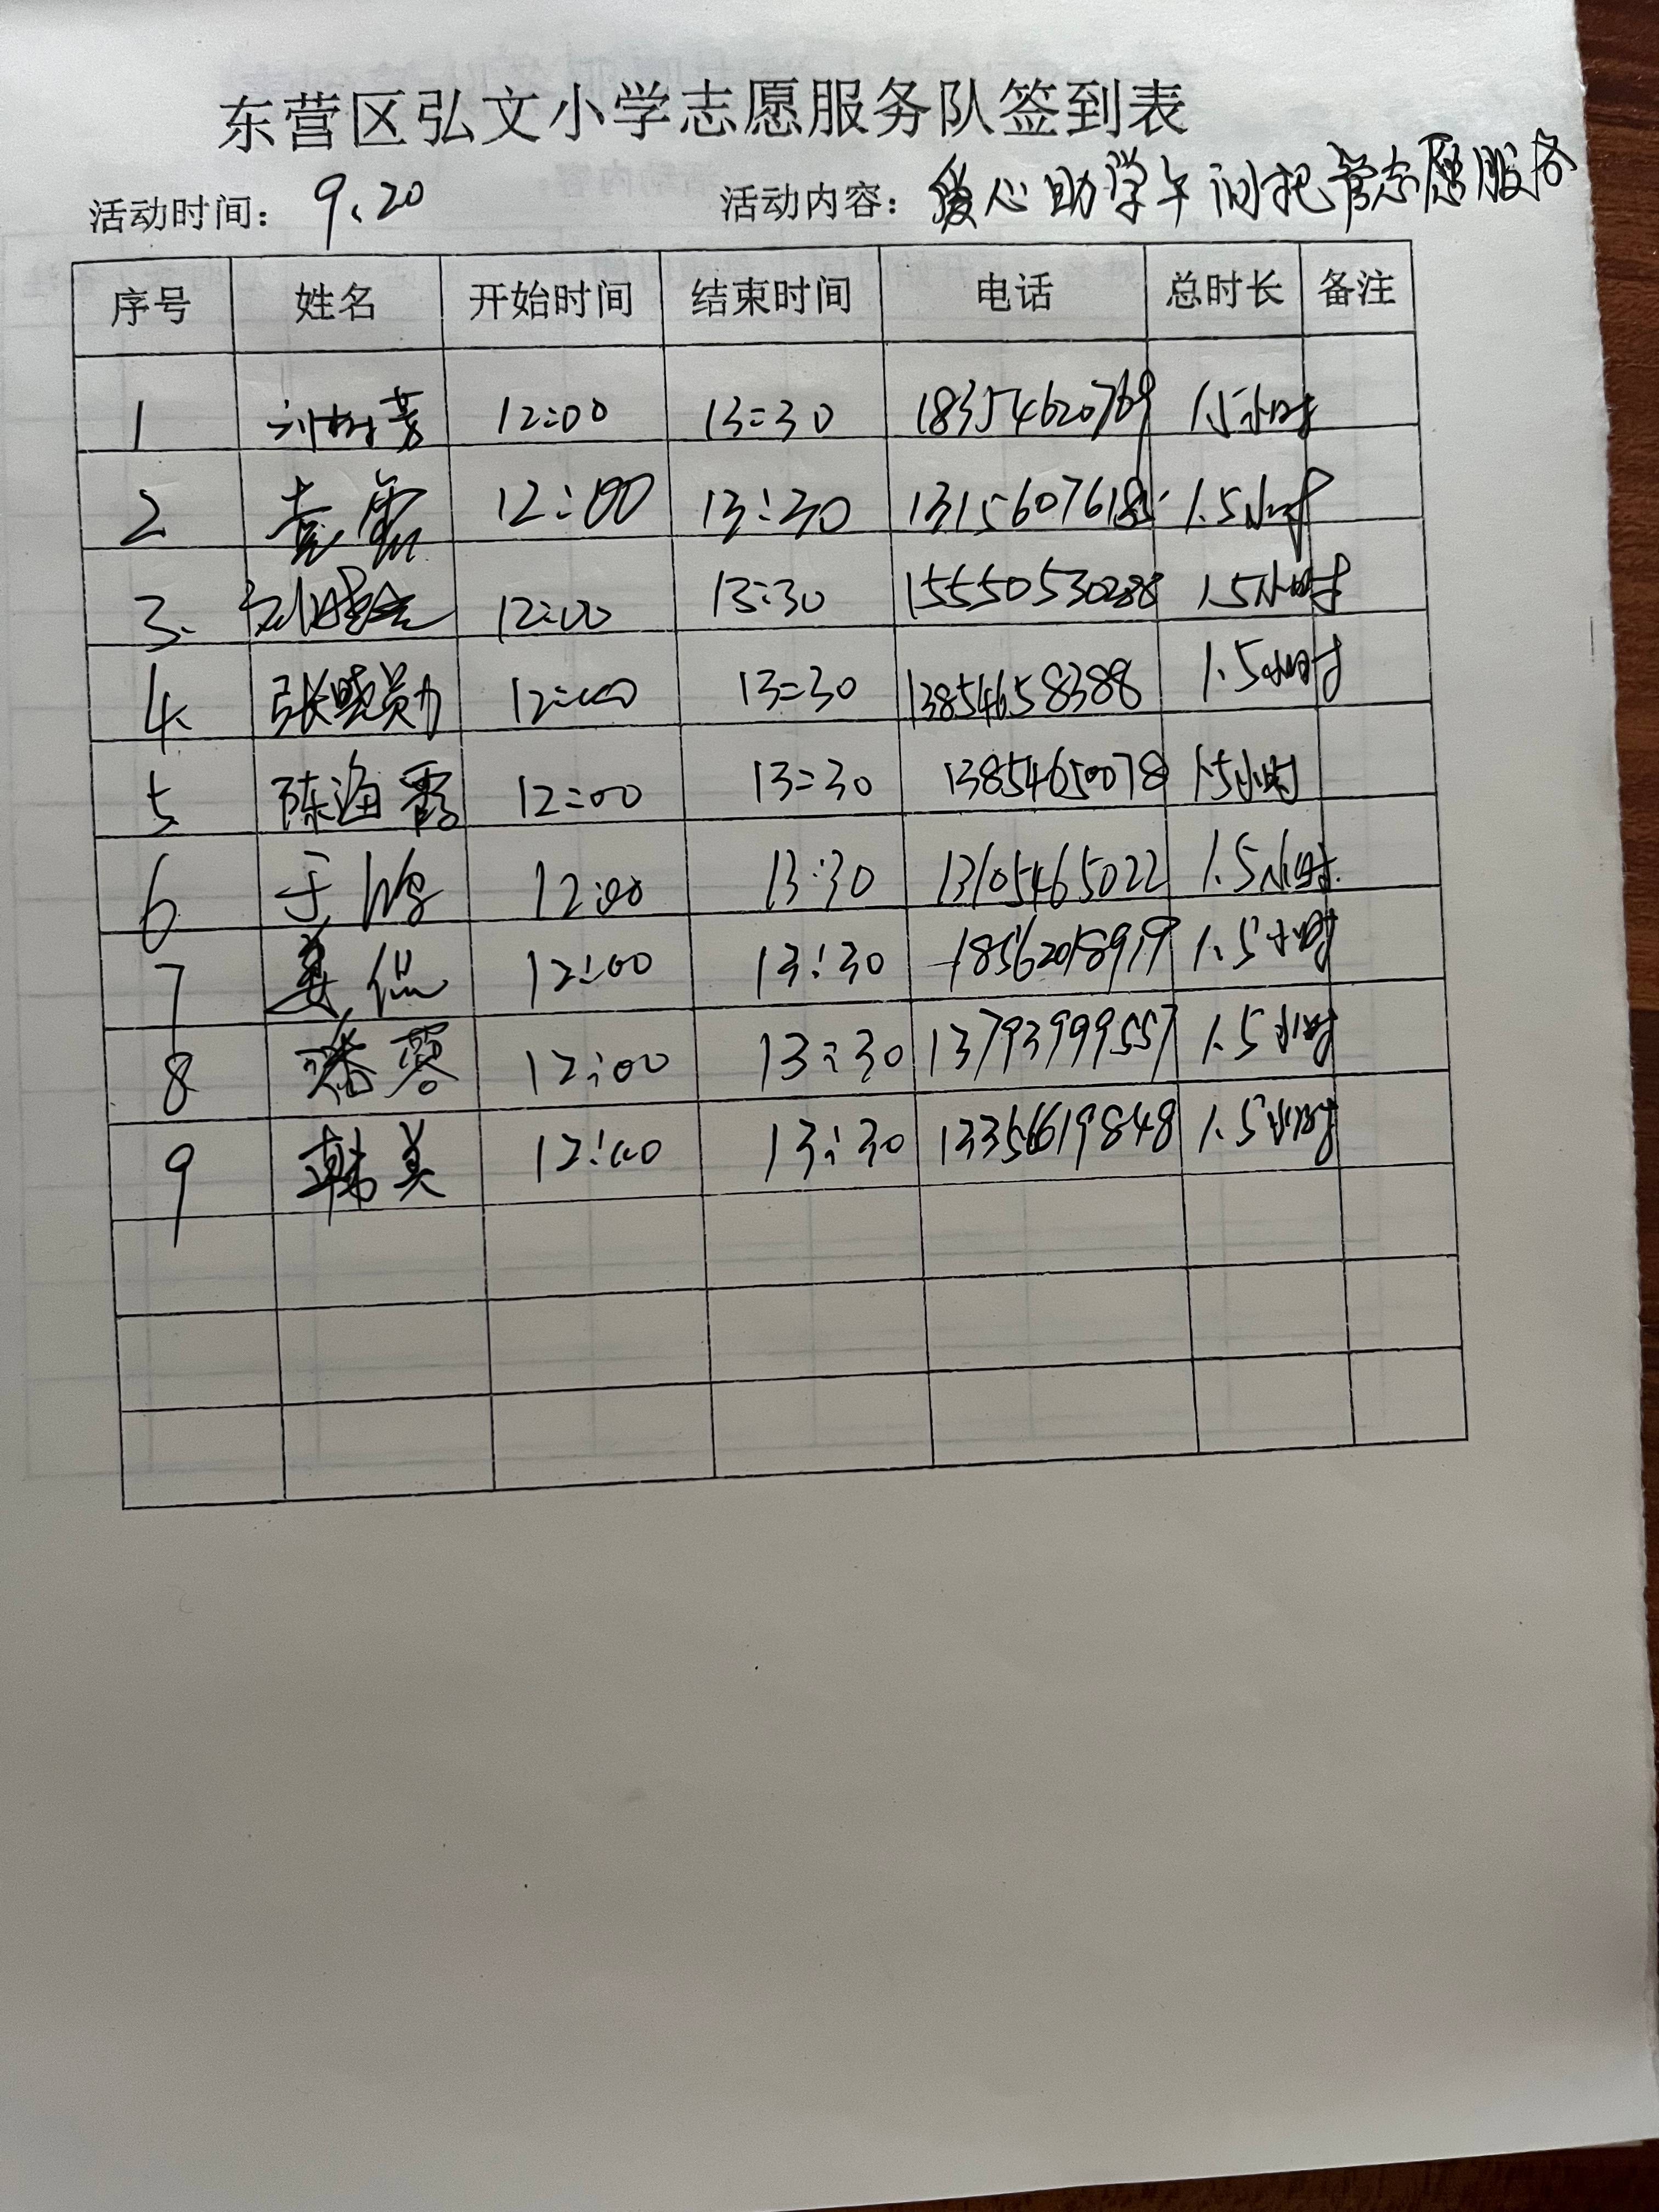 东营区弘文小学志愿服务队签到表
活动时间: 9、20 活动内容: 爱心助学午间托管志愿服务
序号 姓名 开始时间 结束时间 电话 总时长 备注
1 刘树芳 12:00 13:30 18354620769 1.5小时
2 袁雷 12:00 13:30 13156076185 1.5小时
3、 12:00 13:30 15550530288 1.5小时
4、 张晓勋 12:00 13:30 13854658388 1.5小时
5 陈海霞 12:00 13:30 13854650078 1.5小时
6 于 12:00 13:30 13105465022 1.5小时
7 姜侃 12:00 13:30 18562018919 1.5小时
8 潘霞 12:00 13:30 13793999557 1.5小时
9 韩美 12:00 13:30 13356619848 1.5小时